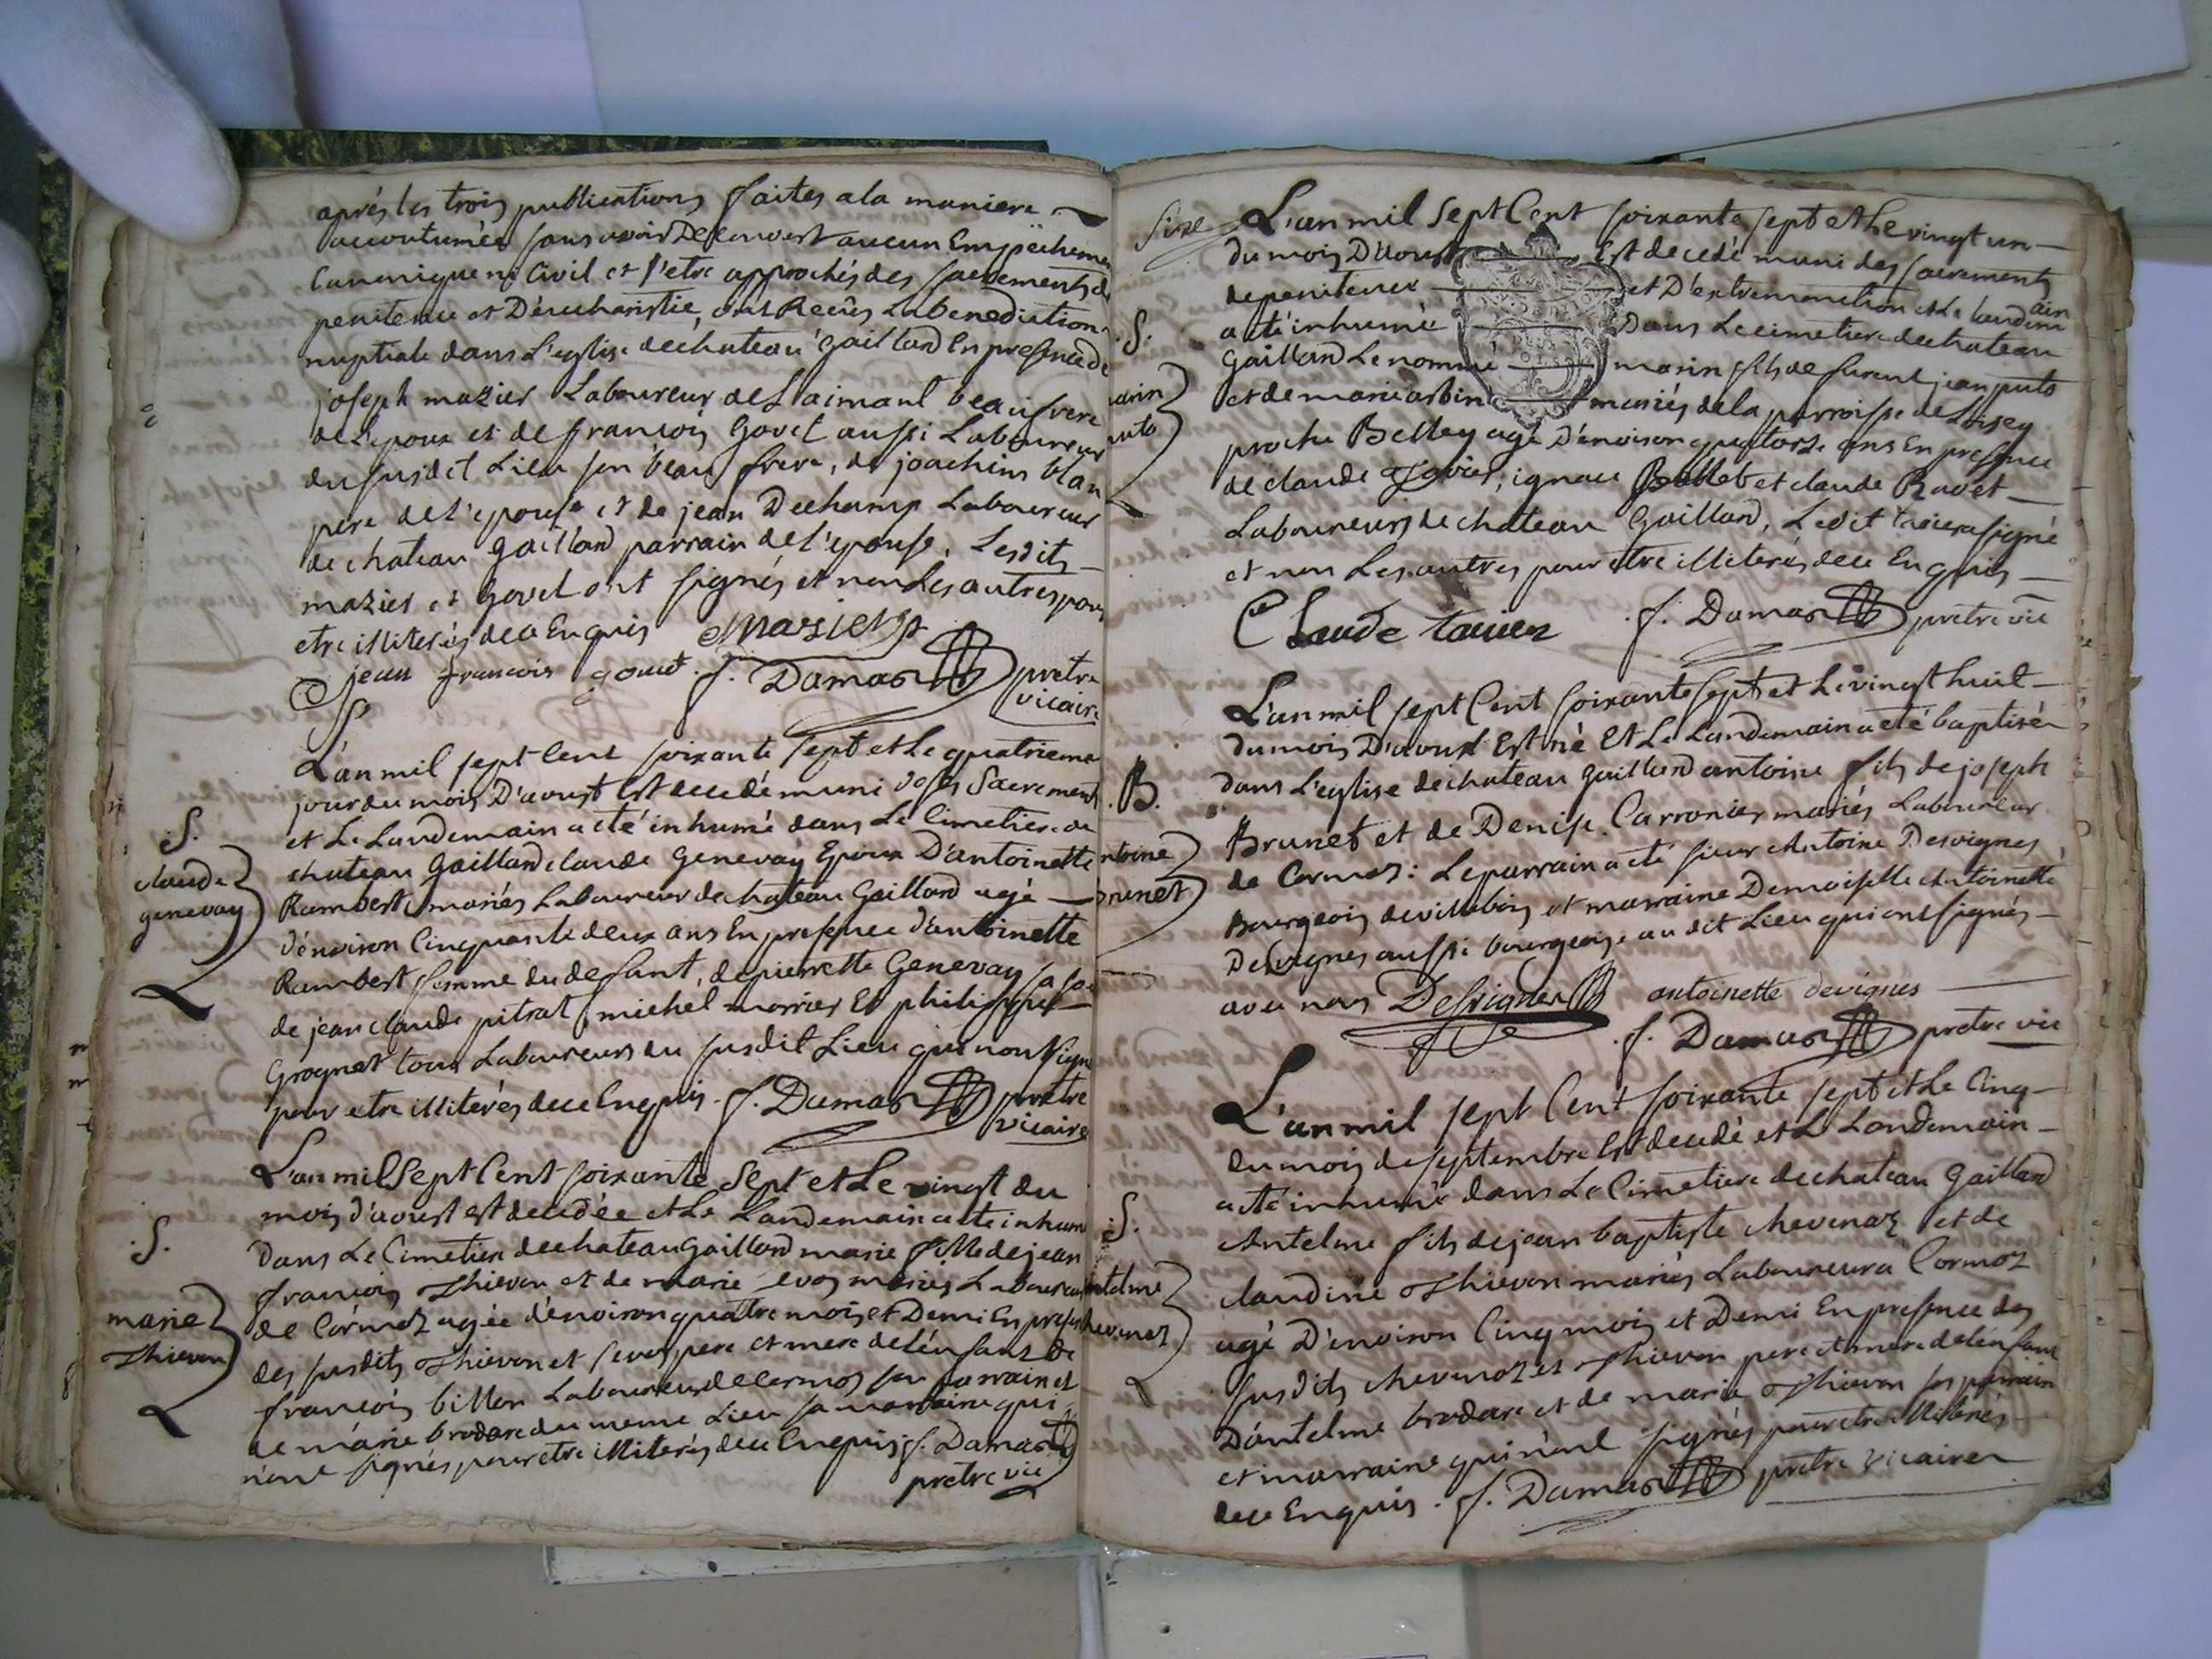 après les trois publications faites a la maniere
accoutumée sans avoir Decouvert aucun Empêcheme
Canonique ni Civil et s'etre approchés des sacrements de
penitence et D'eucharistie, ont Reçûs La benediction
nuptiale dans L'eglise de chateau gaillard En presence de
joseph mazier Laboureur de beaufrere
de L'epoux et de françois Govet aussi Laboureur
du susdit Lieu son beau frere, de joachim blan
pere de l'epouse et de jean Dechamp Laboureur
de chateau gaillard parrain de l'epouse, Lesdits
mazier et Govet ont signés et non Les autres pour
etre illiterés de ce Enquis Mazier
jean francois gouet f. Damas pretre
vicaire
L'an mil sept Cent soixante sept et Le quatrieme
jour du mois D'aoust Est decedé muni de ses Sacrements
et Le Landemain a eté inhumé dans Le Cimetiere de
S.
chateau Gaillard claude Genevay Epoux D'antoinette
claude
genevay
Rambert mariés Laboureur de chateau Gaillard agé
d'énviron Cinquante deux ans En presence d'antoinette
Rambert femme du defunt, de pierrette Genevay sa
de jean claude pitrat, michel morrier Et philippe
Grognet tous Laboureurs du susdit Lieu qui n'ont signé
pour etre illiterés de ce Enquis. f. Damas pretre
vicaire
L'an mil Sept Cent soixante Sept et Le vingt du
mois d'aoust est decedée et Le Landemain a eté inhum
S.
Dans Le Cimetiere de chateau Gaillard marie fille de jean
françois Thievon et de marie mariés Laboureur
marie
Thievon
de Córmoz agée d'énviron quatre mois et Demi En presen
des susdits Thievon et pere et mere de L'énfant De
françois billon Laboureur de Cormoz son parrain et
de márie brodare du meme Lieu sa marraine qui
n'ont signés pour etre illiterés de ce Enquis f. Damas
pretre vic
L'an mil Sept Cent soixante sept et Le vingt un
du mois D'aoust Est decedé muni des sacrements
de penitence et D'extremonction et Le landemain
S.
a eté inhumé Dans Le cimetiere de chateau
Gaillard Le nommé marin fils de furent jean puto
marin
puto
et de marie mariés de la parroisse de
proche Belley agé D'énviron quatorze ans En presence
de claude , ignace Bollet et claude Ravet
Laboureurs de chateau Gaillard, Ledit a signé
et non Les autres pour etre illiterés de ce Enquis
Claude tavier f. Damas pretre vic
L'an mil sept Cent soixante sept et Le vingt huit
du mois D'aoust Est né Et Le Landemain a eté baptisé
B.
dans L'eglise de chateau gaillard antoine fils de joseph
antoine
Brunet
Brunet et de Denise Carronier mariés Laboureur
de Cormoz: Le parrain a eté sieur Antoine Desvignes
Bourgeois de villebois et marraine Demoiselle Antoinette
Desvignes aussi bourgeoise au dit Lieu qui ont signés
avec nous Desvignes antoinette devignes
f. Damas pretre vic
L'an mil sept Cent soixante sept et Le Cinq
du mois de septembre Est decedé et Le Landemain
a eté inhumé dans Le Cimetiere de chateau Gaillard
S.
Antelme fils de jean baptiste chevenoz et de
antelme
chevenoz
claudine Thievon mariés Laboureur a Cormoz
agé D'énviron Cinq mois et Demi En presence des
susdits chevenoz et Thievon pere et mere de L'enfant
D'antelme brodare et de marie Thievon ses parrain
et marraine qui n'ont signés pour etre illiterés
de ce Enquis. f. Damas pretre vicaire